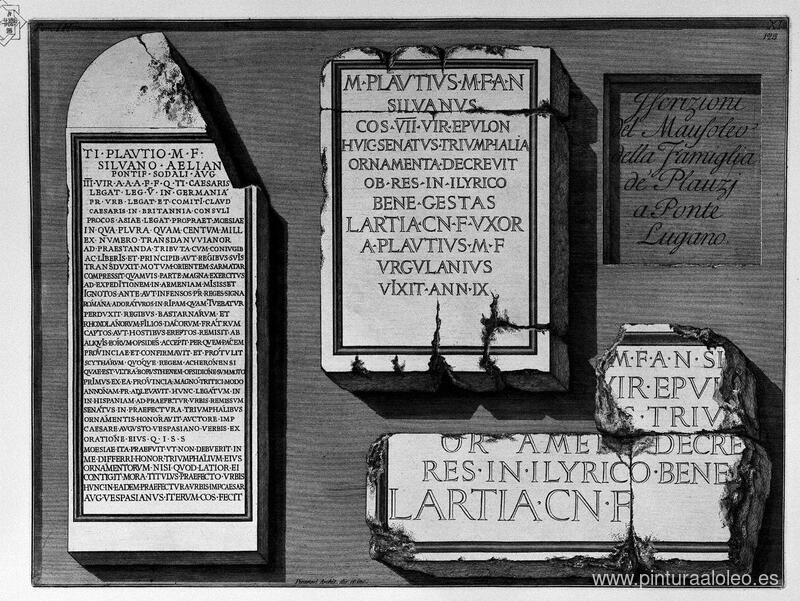 TI · PLAVTIO · M · F ·
SILVANO · AELIAN
PONTIF · SODALI · AVG
III · VIR · A · A · A · F · F · Q · TI · CAESARIS
LEGAT · LEG · V · IN · GERMANIA
PR · VRB · LEGAT · ET · COMITI · CLAVD
CAESARIS · IN · BRITANNIA · CONSVLI
PROCOS · ASIAE · LEGAT · PROPRAET · MOESIAE
IN · QVA · PLVRA · QVAM · CENTVM · MILL
EX · NVMERO · TRANSDANVVIANOR
AD · PRAESTANDA · TRIBVTA · CVM · CONIVGIB
AC · LIBERIS · ET · PRINCIPIB · AVT · REGIBVS · SVIS
TRANSDVXIT · MOTVM · ORIENTEM · SARMATAR
COMPRESSIT · QVAMVIS · PARTE · MAGNA · EXERCITVS
AD · EXPEDITIONEM · IN · ARMENIAM · MISISSET
IGNOTOS · ANTE · AVT · INFENSOS · P · R · REGES · SIGNA
ROMANA · ADORATVROS · IN · RIPAM · QVAM · TVEBATVR
PERDVXIT · REGIBVS · BASTARNARVM · ET
RHOXOLANORVM · FILIOS · DACORVM · FRATRVM
CAPTOS · AVT · HOSTIBVS · EREPTOS · REMISIT · AB
ALIQVIS · EORVM · OPSIDES · ACCEPIT · PER · QVEM · PACEM
PROVINCIAE · ET · CONFIRMAVIT · ET · PROTVLIT
SCYTHARVM · QVOQVE · REGEM · A CHERONENSI
QVAE · EST · VLTRA · BORVSTHENEN · OPSIDIONE · SVMMOTO
PRIMVS · EX · EA · PROVINCIA · MAGNO · TRITICI · MODO
ANNONAM · P · R · ADLEVAVIT · HVNC · LEGATVM · IN
IN · HISPANIAM · AD · PRAEFECTVR · VRBIS · REMISSVM
SENATVS · IN · PRAEFECTVRA · TRIVMPHALIBVS
ORNAMENTIS · HONORAVIT · AVCTORE · IMP
CAESARE · AVGVSTO · VESPASIANO · VERBIS · EX
ORATIONE · EIVS · Q · I · S · S
MOESIAE · ITA · PRAEFVIT · VT · NON · DEBVERIT · IN
ME · DIFFERRI · HONOR · TRIVMPHALIVM · EIVS
ORNAMENTORVM · NISI · QVOD · LATIOR · EI
CONTIGIT · MORA · TITVLVS · PRAEFECTO · VRBIS
HVNC · IN · EADEM · PRAEFECTVRA · VRBIS · IMP · CAESAR
AVG · VESPASIANVS · ITERVM · COS · FECIT
M · PLAVTIVS · M · F · A · N
SILVANVS
COS · VII · VIR · EPVLON
HVIC · SENATVS · TRIVMPHALIA
ORNAMENTA · DECREVIT
OB · RES · IN · ILYRICO
BENE · GESTAS
LARTIA · CN · F · VXOR
A · PLAVTIVS · M · F
VRGVLANIVS
VIXIT · ANN · IX
128
Iscrizioni
del Mausoleo
della Famiglia
de' Plauzj
a Ponte
Lugano
M · F · A · N · SI
VIR · EPV
S · TRIV
OR AME DECRE
RES · IN · ILYRICO · BENE
LARTIA · CN · F
Piranesi Archit. dis. et inc.
www.pinturaaloleo.es